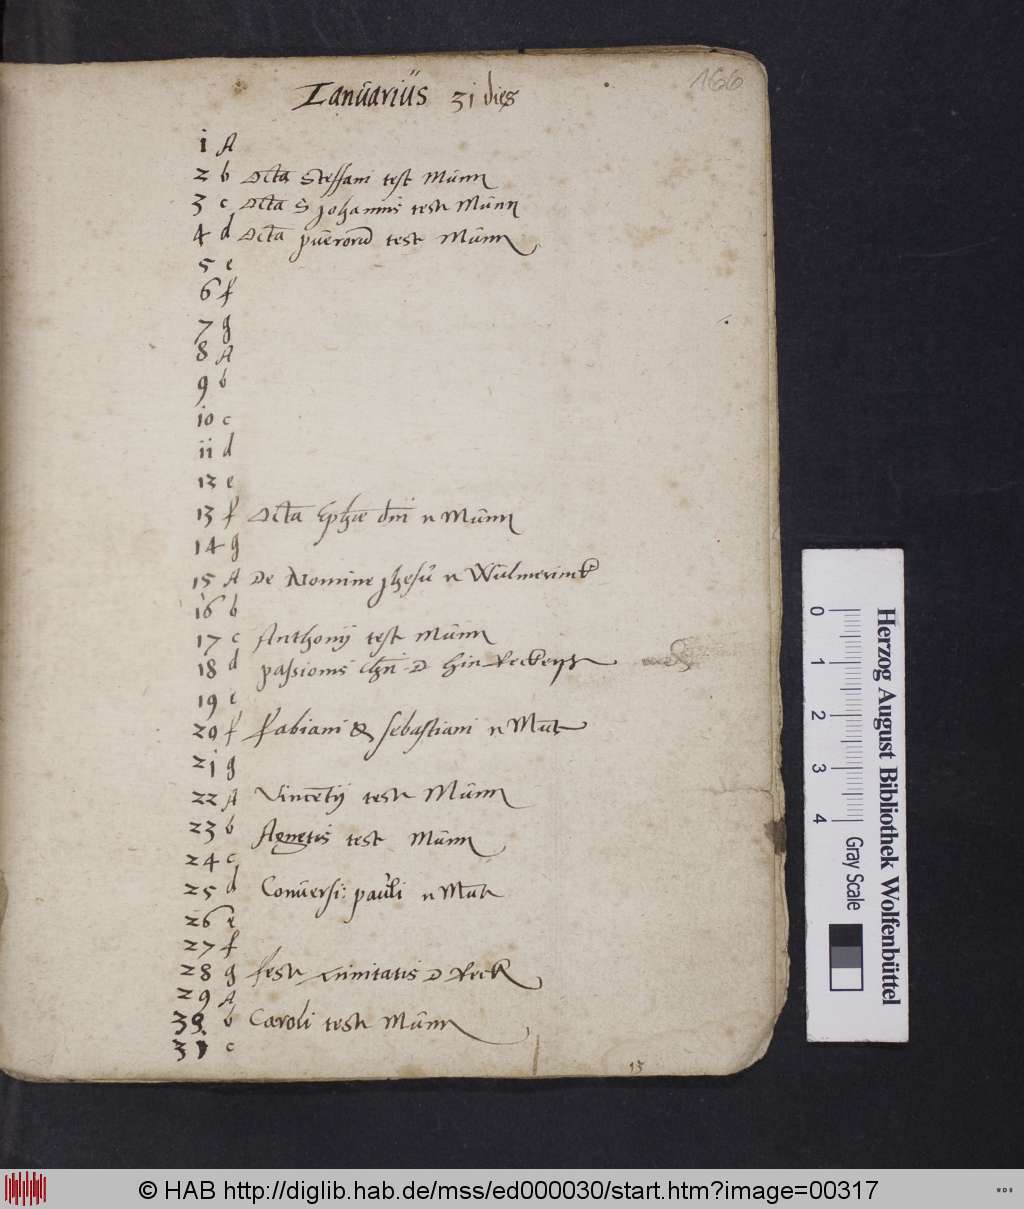 166
Ianűariűs 31 dies
1 A
2 b Octa Steffani test Münn
3 c Octa S Johannis test Münn
4 d Octa pűerorū test Münn
5 e
6 f
7 g
8 A
9 b
10 c
11 d
13 e
13 f Octa Epħie dm̄i n Münn
14 g
15 A De Nomine Jhesű n Wűlmerinck
16 b
17 c Anthonij test Münn
18 d passionis D Hin Reckerß
19 e
20 f Fabiani & Sebastiani n Műt
21 g
22 A Vincētij test Münn
23 b Agnetis test Münn
24 c
25 d Conűersi: paűli n Műt
26 e
27 f
28 g Fest trinitatis D Reck
29 A
30 b Caroli test Münn
31 c
15
Herzog August Bibliothek Wolfenbüttel
0 1 2 3 4
Gray Scale
© HAB http://diglib.hab.de/mss/ed000030/start.htm?image=00317